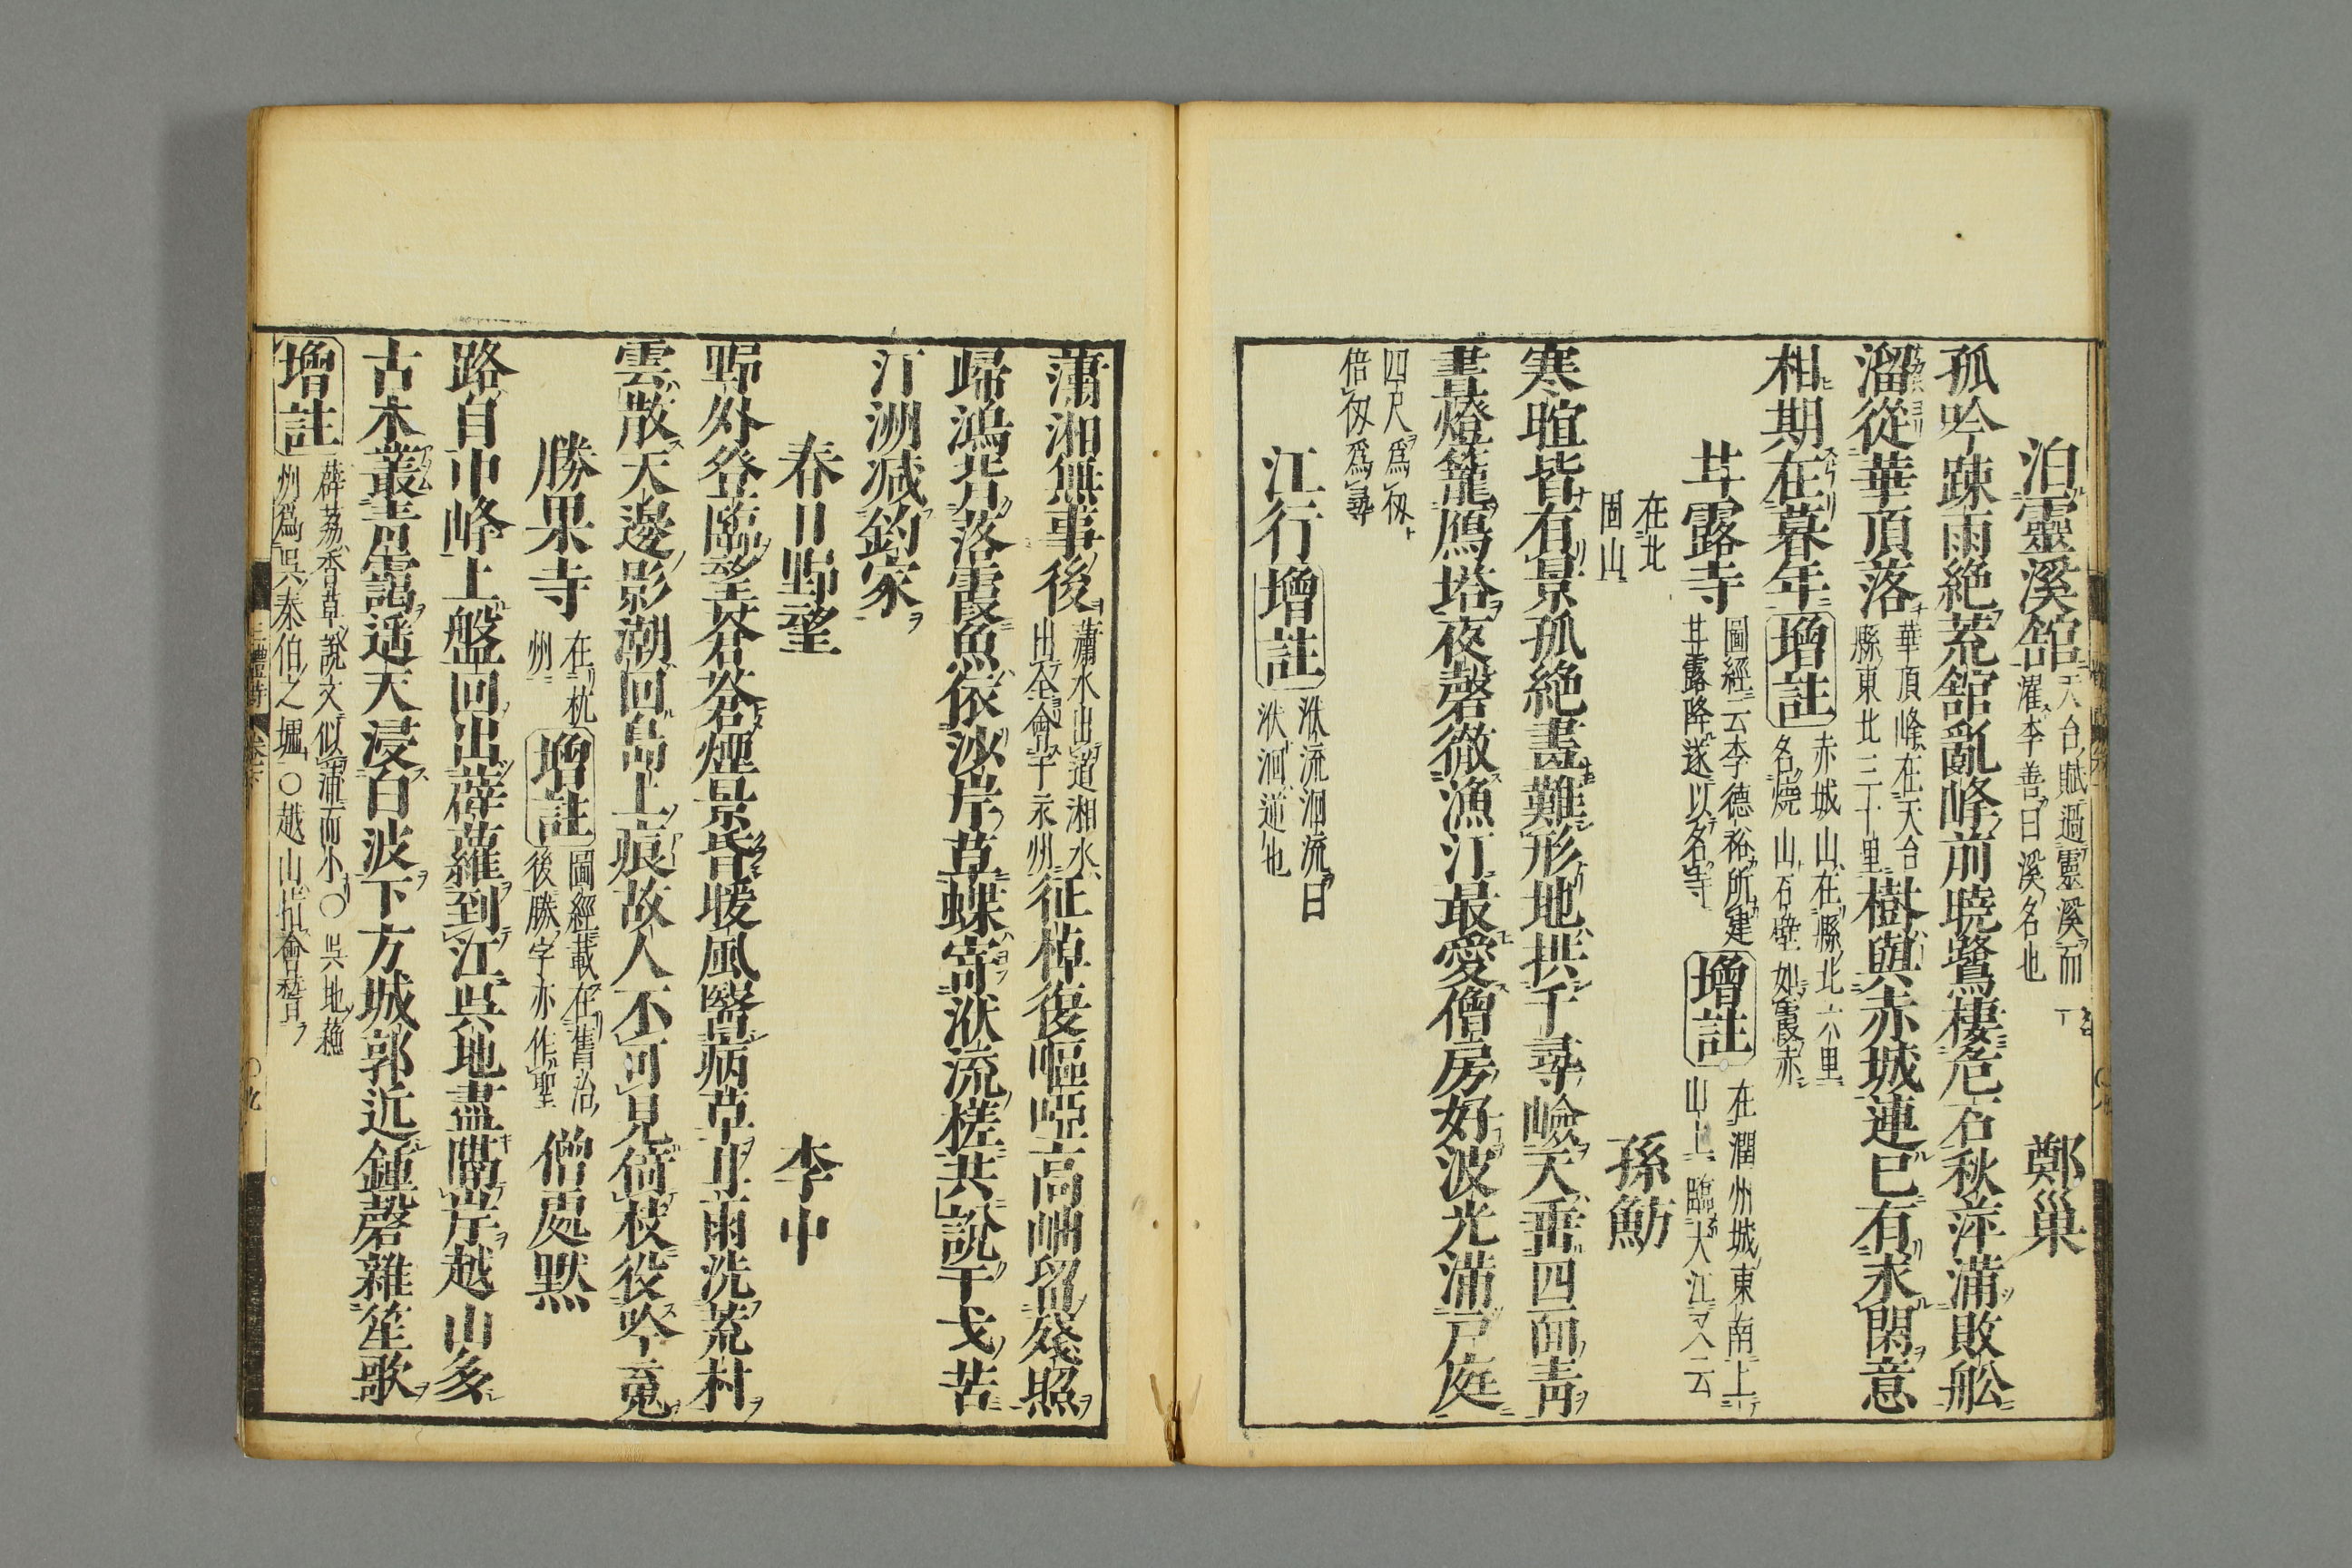 泊靈溪舘 天台賦過靈溪而濯李善曰溪名也 鄭巢
孤吟疎雨絶荒舘亂峰前曉鷺棲危石秋萍滿敗舩
溜從華頂落 華頂峰在天台縣東北三十里 樹與赤城連已有求閑意
相期在暮年 增註 赤城山在縣北六里名燒山石壁如霞赤
甘露寺 圖經云李德裕所建甘露降遂以名寺 增註 在潤州城東南上山上臨大江又云
在北固山 孫魴
寒暄皆有景孤絶畫難形地拱千尋嶮天垂四面青
晝燈籠鴈塔夜磬徹漁汀最愛僧房好波光滿戸庭
四尺爲仭倍仭爲尋
江行 增註 泝流洄流曰洑洄逆也
蕭湘無事後 瀟水出道湘水出全會于永州 征棹復嘔啞高岫留殘照
歸鴻背落霞魚依沙岸草蝶寄洑流槎共說干戈苦
汀洲减釣家
春日野望 李中
野外登臨望蒼蒼煙景昏暖風醫病草甘雨洗荒村
雲散天邊影潮回島上痕故人不可見倚杖役吟䰟
勝果寺 在杭州 增註 圖經載在舊治後勝字亦作聖 僧處默
路自中峰上盤回出薜蘿到江呉地盡隔岸越山多
古木叢青靄遥天浸白波下方城郭近鍾磬雜笙歌
增註 薜荔香草說文似蒲而小○呉地蘓州爲呉泰伯之墟○越山指會稽